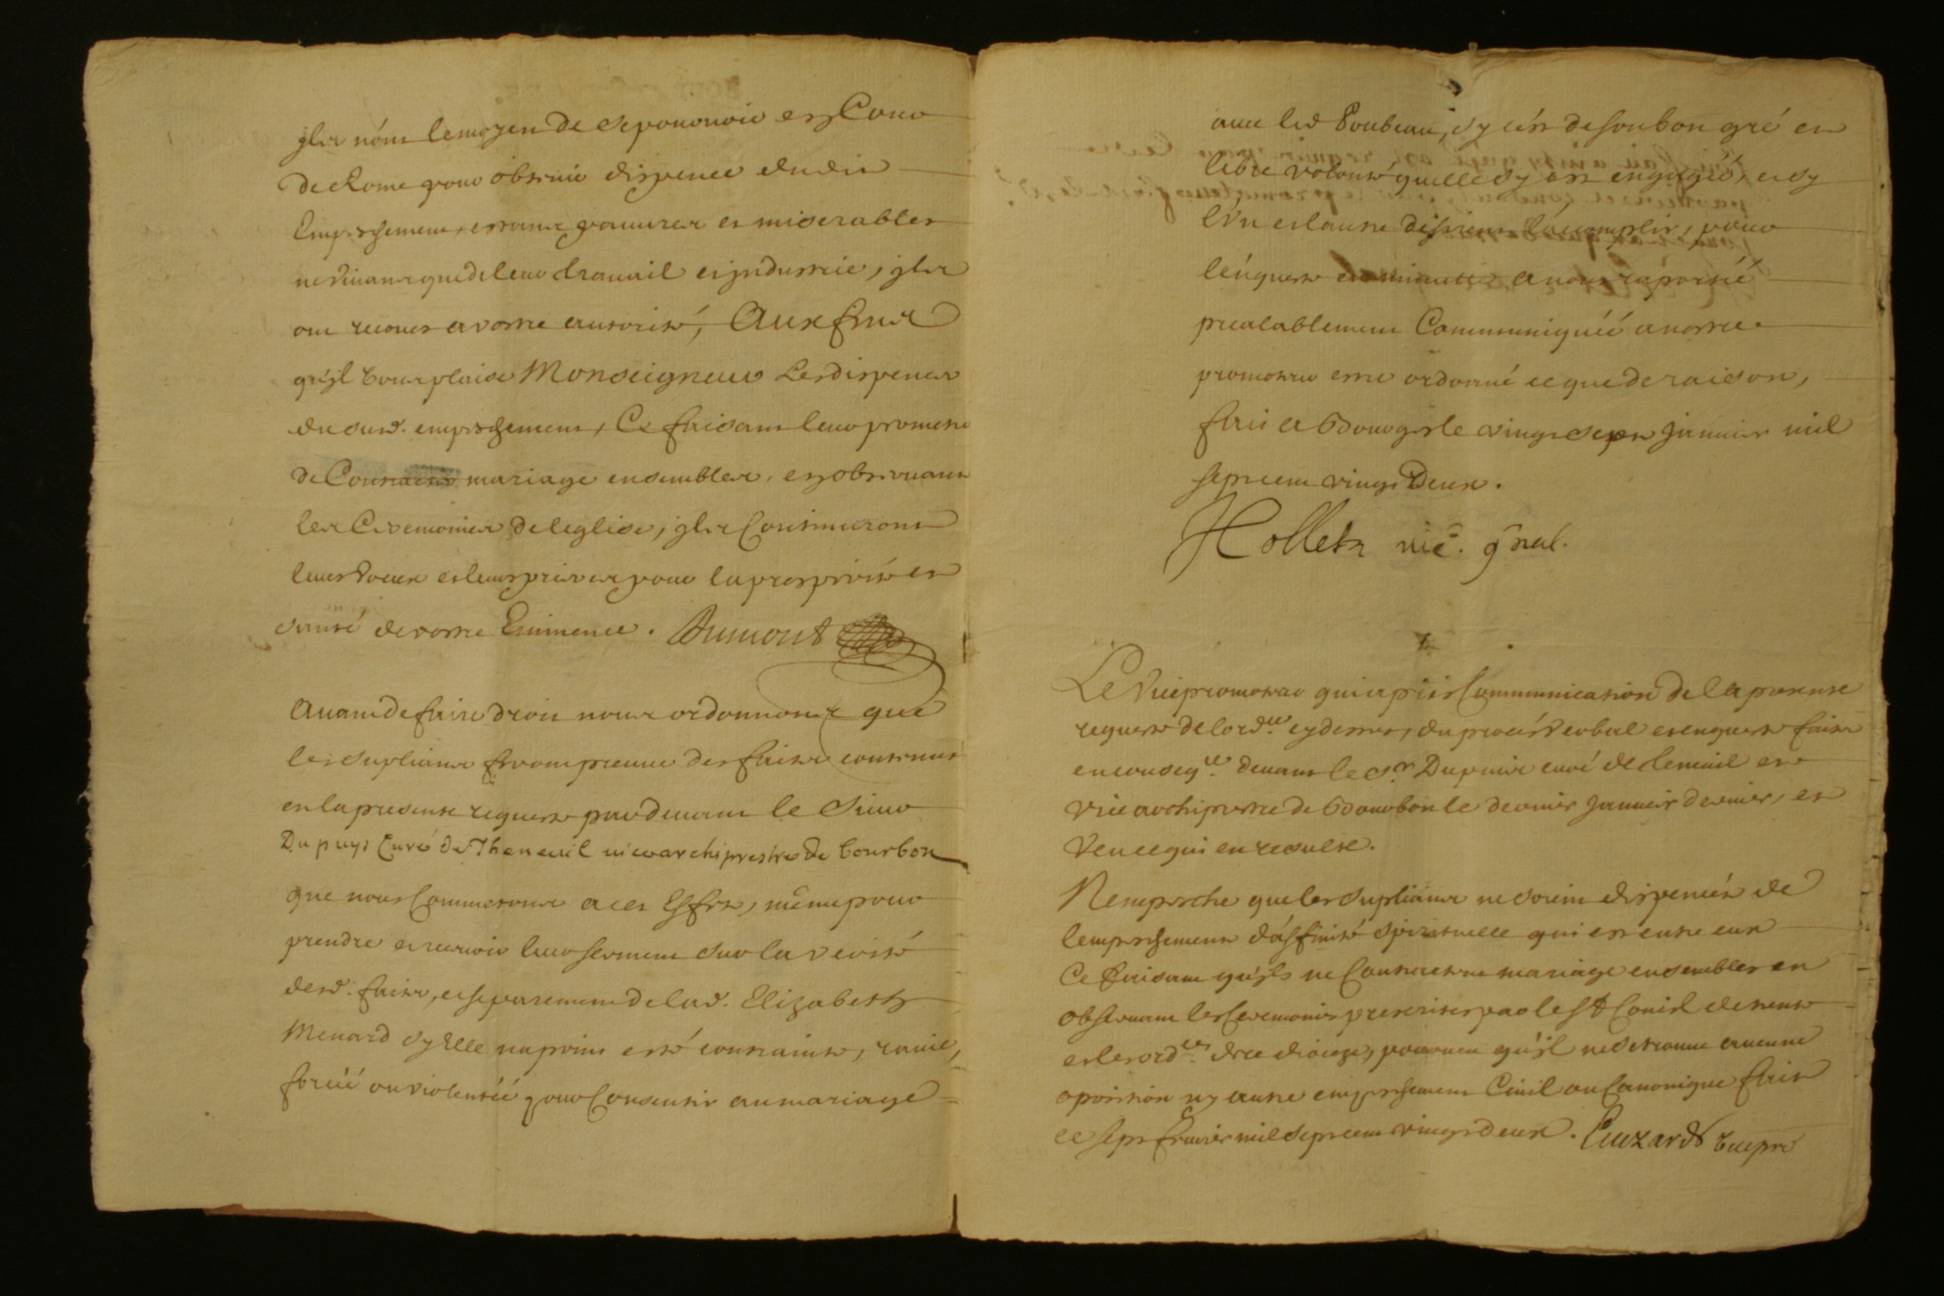 ils nont lemoyen de se pouruoir en Cour
de Rome pour obtenir dispence dudit
Empeschement, estant pauures et miserables
ne viuant que de leur trauail et jndustrie, ils
ont recours a vostre autorité, Aux fins
qu'il vous plaise Monseigneur Les dispencer
du susd. empeschement, Ce faisant leur promettre
de Contracter mariage ensembles, en obseruant
les Ceremonies de leglise, ils Continuront
leurs voeux et leurs prieres pour la prosperité et
santé de vostre Eminence. Aumont
Auant de faire droit nous ordonnons que
les suplians feront preuue des faits contenus
en la presente requeste pardeuant le Sieur
Dupuys Curé de Theneuil vicearchiprestre de bourbon
que nous Commetons a ces Effets, mesme pour
prendre et receuoir leur serment sur la verité
desd. faits, et separement de lad. Elizabeth
Menard sy Elle na point esté contrainte, rauie,
forcéé ou violentéé pour Consentir au mariage
auec led Boubeau, sy cest de son bon gré et
libre volonté quelle sy est engagéé, et sy
lun et lautre desirent lacomplir, pour
lenqueste a nous raportéé
prealablement Communiquéé a nostre
promoteur estre ordonné ce que de raison,
fait a Bourges le vingt sept januier mil
sept cent vingt Deux.
Hollets vic. gnal.
Le Vicepromoteur qui a pris Communication de la presente
requeste de lord.ce cy dessus, du procés verbal et enqueste faite
en conseq.ce deuant le Sr Dupuis curé de teneuil et
vice archiprestre de Bourbon le dernier januier dernier, et
Veu ce qui en resulte.
Nempesche que les suplians ne soient dispencés de
lempeschement daffinité spirituelle qui est entre eux
Ce faisant quils ne Contractent mariage ensembles en
obseruant les Ceremonies prescrites par le St Concil de trente
et les ord.ces de ce diocese, pourueu qu'il ne se trouue aucune
oposition ny autre empeschement Ciuil ou Canonique fait
ce sept feurier mil sept cent vingt deux. vicepro